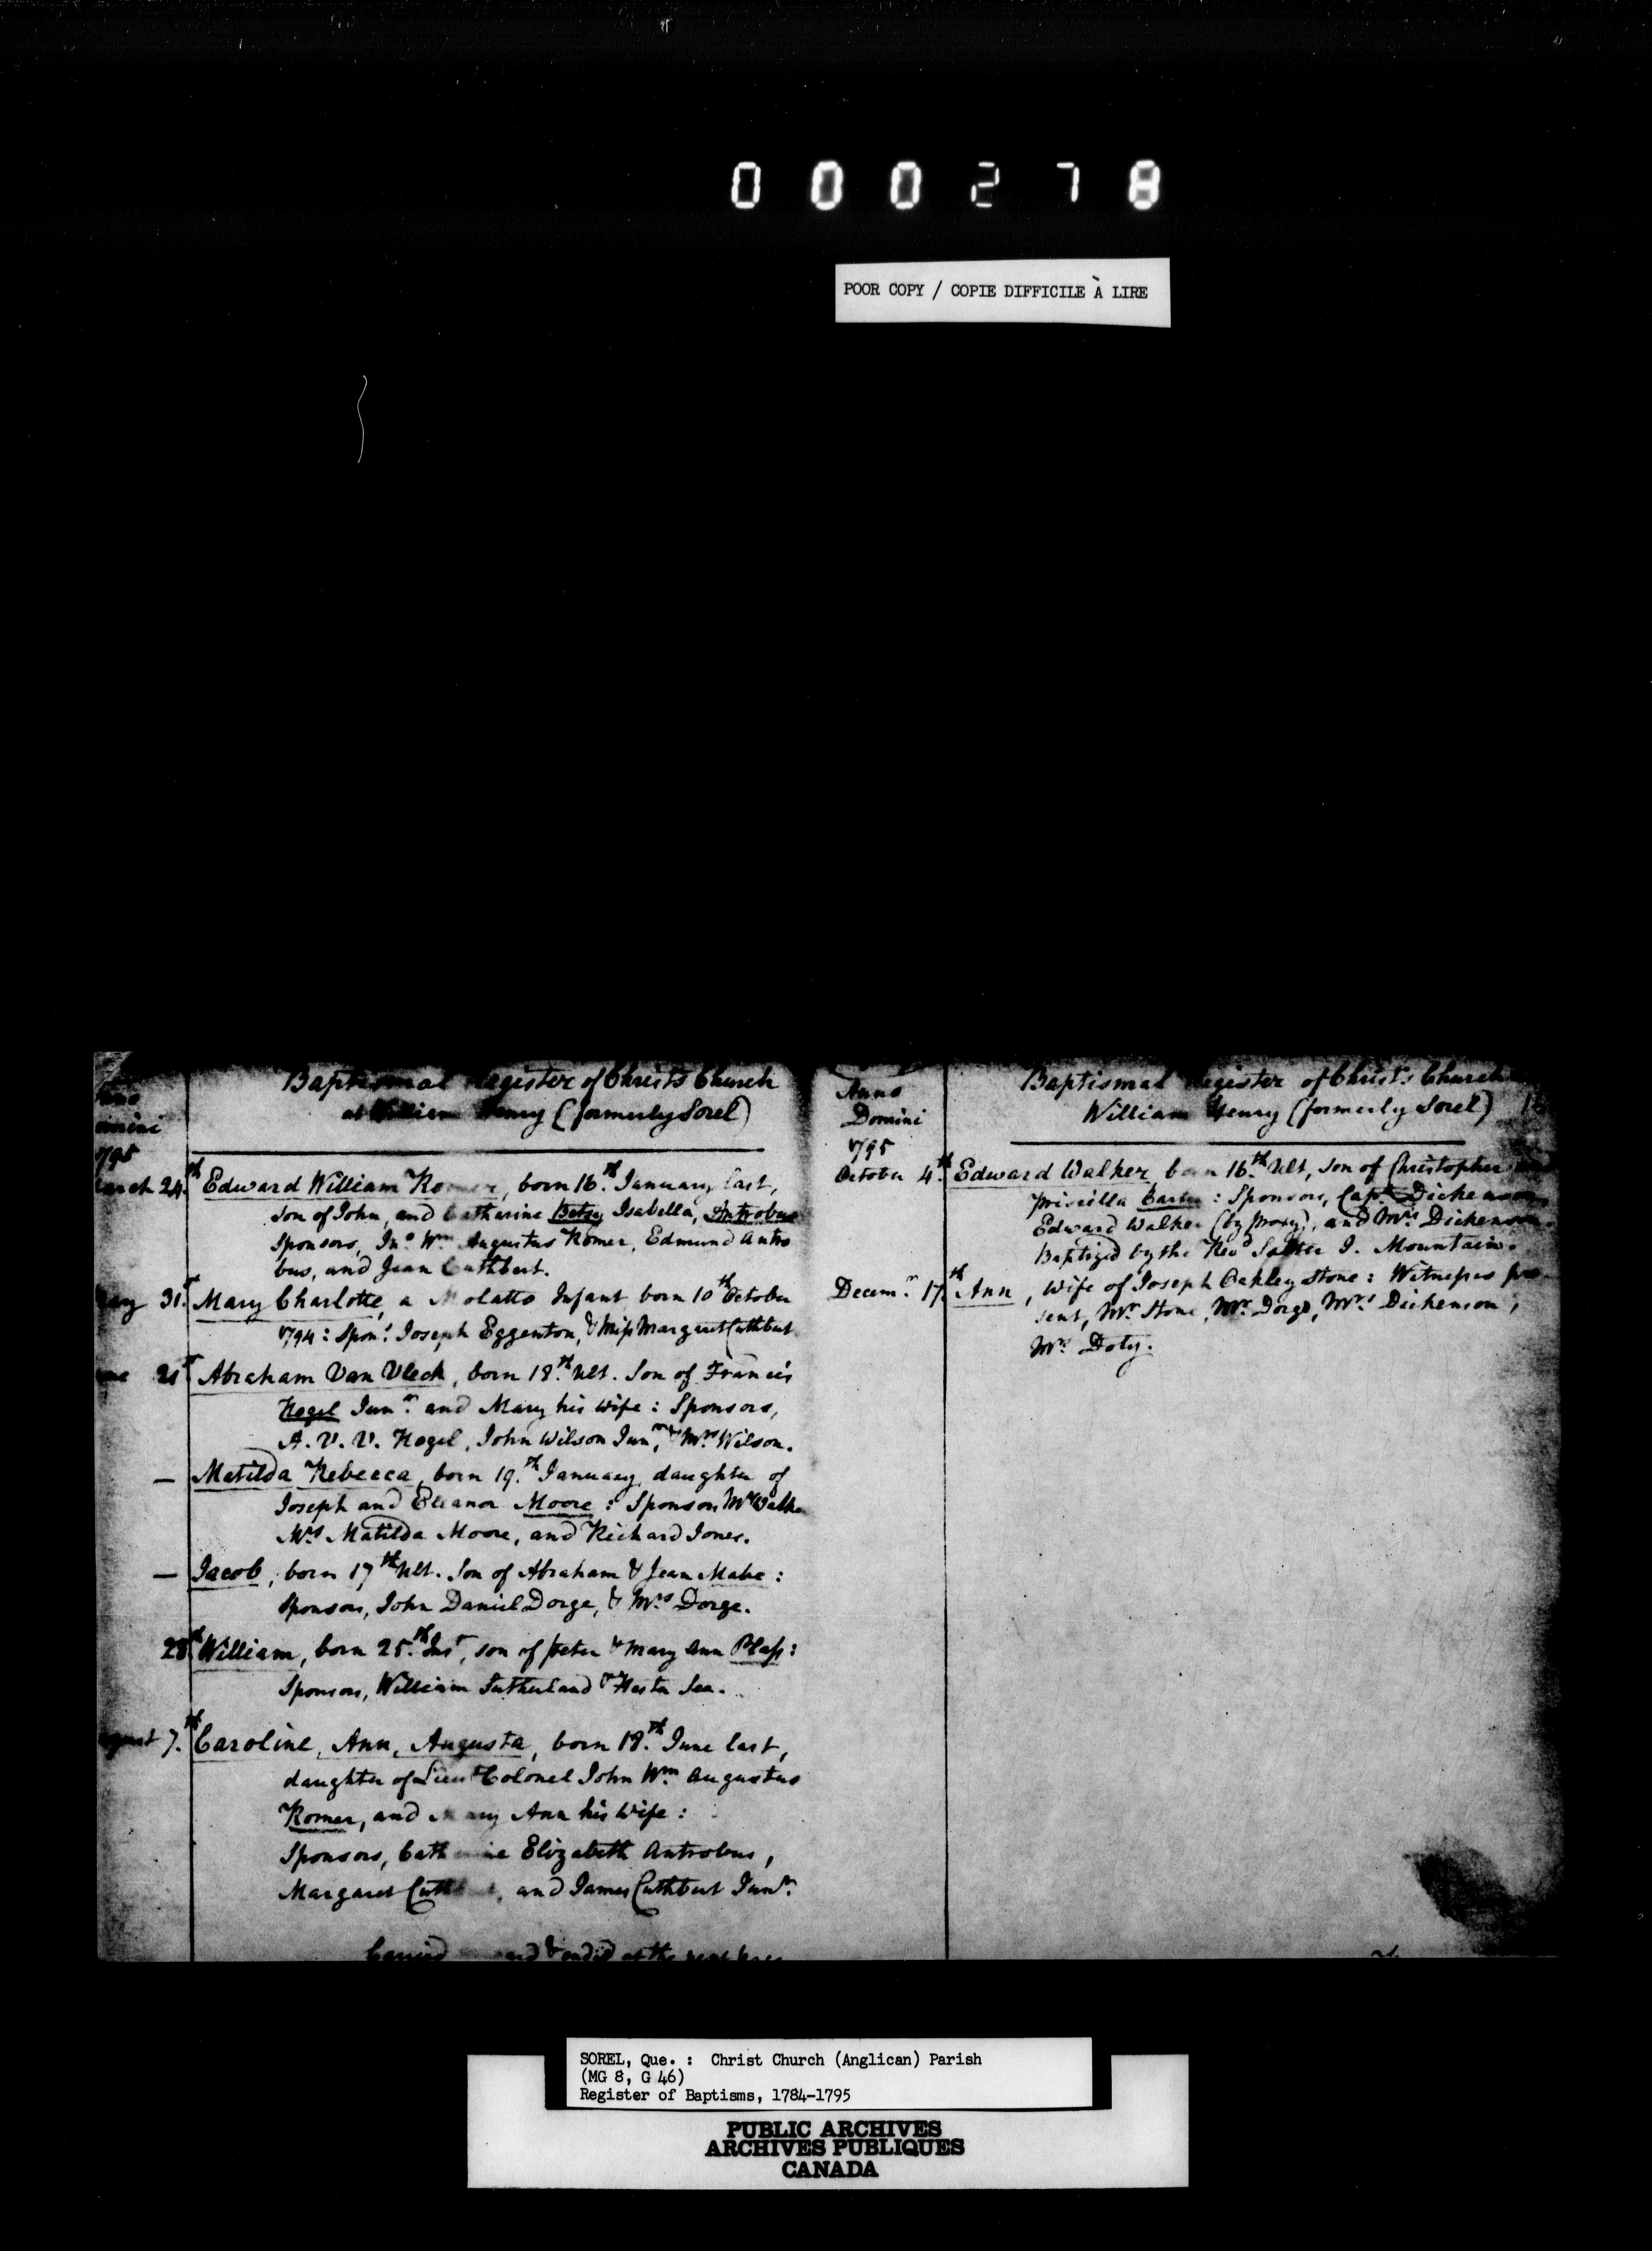 000278
POOR COPY / COPIE DIFFICILE À LIRE
Baptismal Register of Christ's Church
at William Henry (formerly Sorel)
1795
March 24.th Edward William Romer, born 16.th January last,
son of John, and Catharine Betsy Isabella, Antrobus
Sponsors, Jn.o W.m Augustus Romer, Edmund Antro
bus, and Jean Cuthbert.
May 31.st Mary Charlotte, a Molatto Infant born 10th October
1794: Spon.s Joseph Eggenton, & Miss Margaret Cuthbert
June 21st Abraham Van Vleck, born 18.th Ult. Son of Francis
Hogel Jun.r and Mary his wife: Sponsors,
A. V. V. Hogel, John Wilson Jun.r, & Mrs Wilson.
— Matilda Rebecca, born 19.th January, daughter of
Joseph and Eleanor Moore: Sponsors Mr Walker
Mrs Matilda Moore, and Richard Jones.
— Jacob, born 17th Ult. Son of Abraham & Jean Mabe:
Sponsors, John Daniel Dorge, & Mrs Dorge.
28.th William, born 25.th Inst, son of Peter & Mary Ann Plass:
Sponsors, William Sutherland & Hester Sea.
August 7.th Caroline, Ann, Augusta, born 18.th June last,
daughter of Lieut Colonel John Wm. Augustus
Romer, and Mary Ann his Wife:
Sponsors, Catharine Elizabeth Antrobus,
Margaret Cuthbert, and James Cuthbert Junr.
Anno
Domini
1795
Baptismal Register of Christ's Church
William Henry (formerly Sorel)
October 4.th Edward Walker, born 16.th Ult, son of Christopher and
Priscilla Carter: Sponsors, Capt. Dickenson,
Edward Walker (by proxy), and Mrs Dickenson.
Baptized by the Revd Salter J. Mountain.
Decem.r 17.th Ann, Wife of Joseph Oakley Stone: Witnesses pre-
sent, Mr Stone, Mr. Dorge, Mrs Dickenson,
Mrs Doty.
SOREL, Que. : Christ Church (Anglican) Parish
(MG 8, G 46)
Register of Baptisms, 1784-1795
PUBLIC ARCHIVES
ARCHIVES PUBLIQUES
CANADA